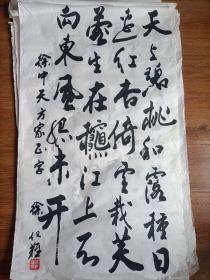 天上碧桃和露種日
邊红杏倚雲栽芙
蓉生在秋江上不
向東風怨未开
徐中天方家正字
徐